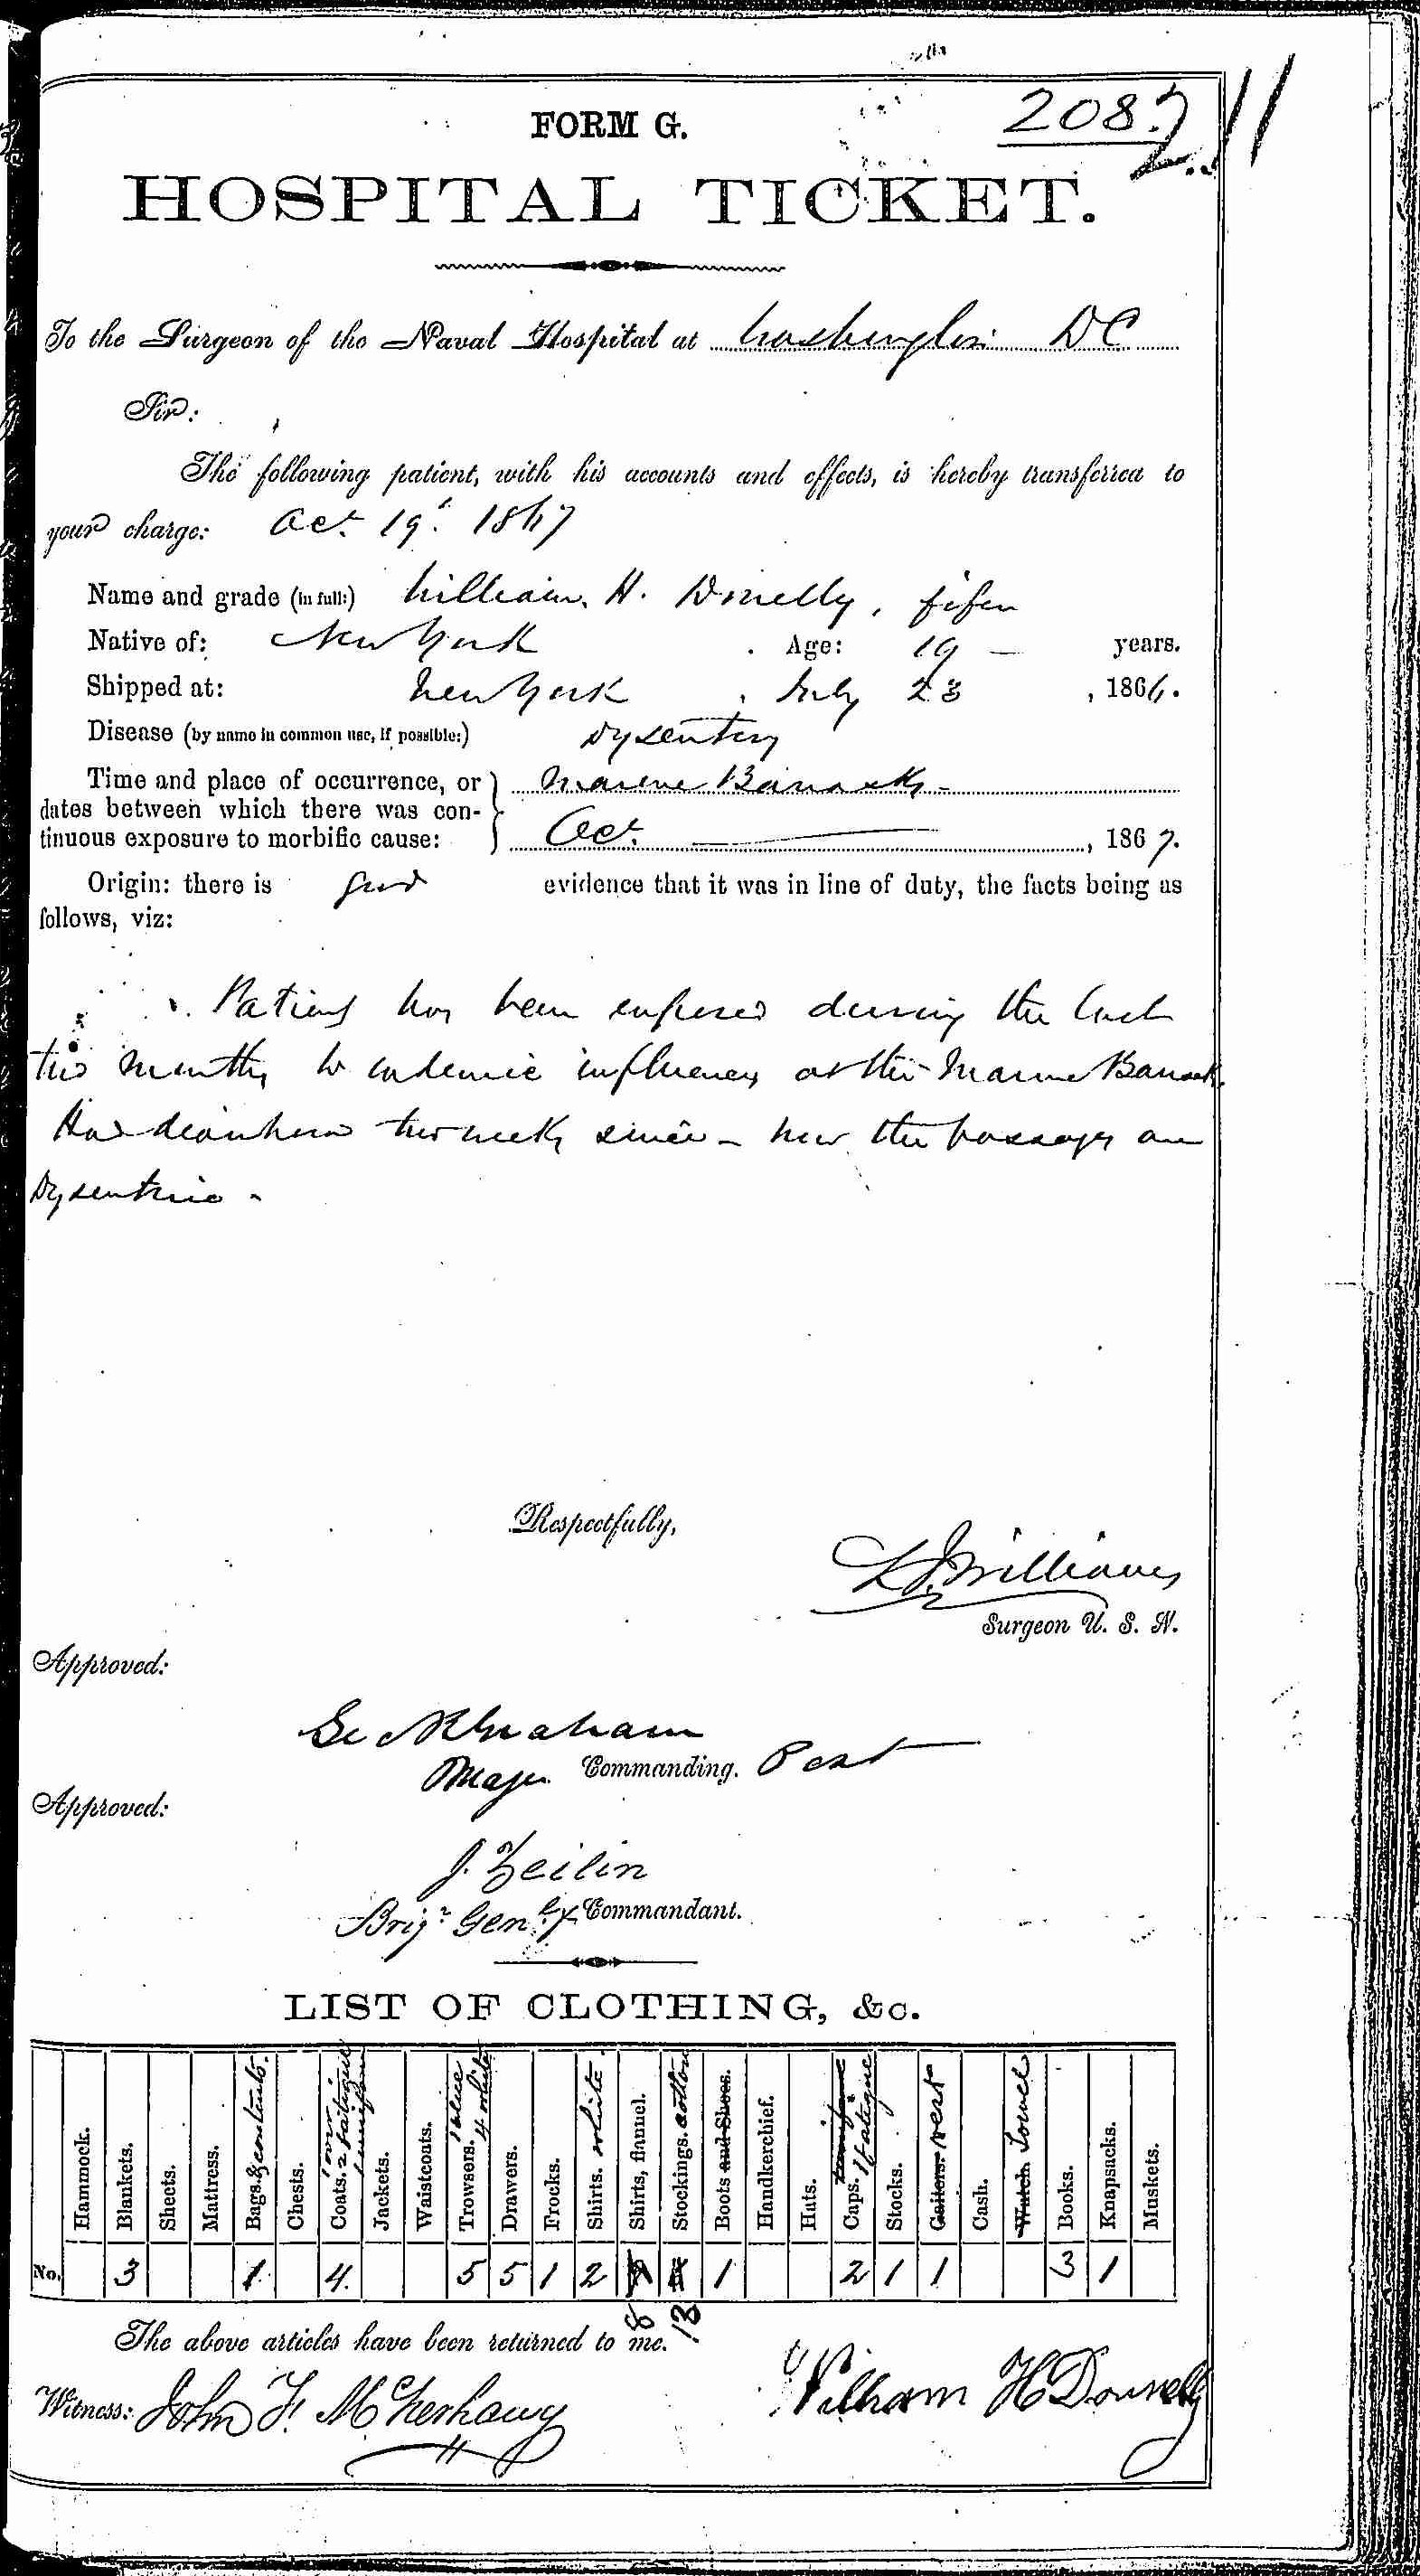 FORM G.
208.
211
HOSPITAL TICKET.
To the Surgeon of the Naval Hospital at Washington DC
Sir:
The following patient, with his accounts and effects, is hereby transferred to
your charge: Oct 19. 1867
Name and grade (in full:) William H. Donnelly, fifer
Native of: New York . Age: 19 — years.
Shipped at: New York , July 23 , 1864.
Disease (by name in common use, if possible:) Dysentery
Time and place of occurrence, or Marine Barracks -
dates between which there was con-
tinuous exposure to morbific cause: Oct. — , 1867.
Origin: there is good evidence that it was in line of duty, the facts being as
follows, viz:
Patient has been exposed during the last
two months to endemic influences at the Marine Barracks.
Had diarrhoea two weeks since - now the passages are
Dysenteric -
Respectfully,
Williams
Surgeon U. S. N.
Approved:
Geo R Graham
Major Commanding. Post
Approved:
J. Zeilin
Brigr Genl & Commandant.
LIST OF CLOTHING, &c.
Hammock. Blankets. Sheets. Mattress. Bags. & contents. Chests. Coats. 1 over 2 fatigue 1 uniform Jackets. Waistcoats. Trowsers. 1 blue 4 white Drawers. Frocks. Shirts. white. Shirts, flannel. Stockings. cotton Boots and Shoes. Handkerchief. Hats. Caps. 1 fatigue Stocks. Gaiters. vest Cash. Watch. Towel Books. Knapsacks. Muskets.
No. 3 1 4. 5 5 1 2 8 13 1 2 1 1 3 1
The above articles have been returned to me.
Witness: John F. William H Donnelly